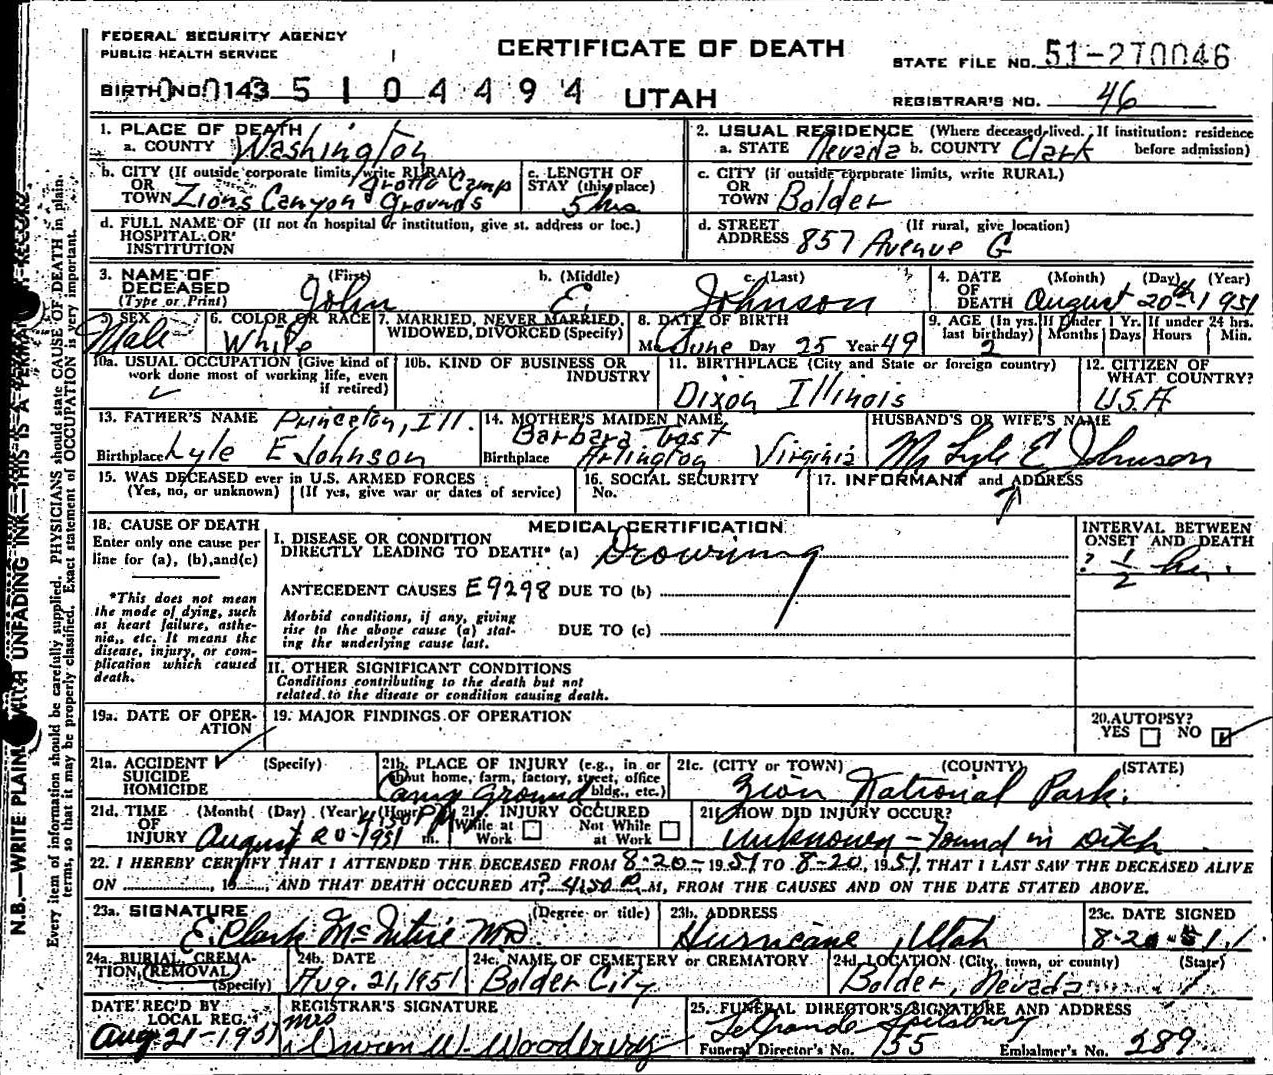 FEDERAL SECURITY AGENCY
PUBLIC HEALTH SERVICE
CERTIFICATE OF DEATH
STATE FILE NO. 51-270046
BIRTH NO. 0143 5104494
UTAH
REGISTRAR'S NO. 46
1. PLACE OF DEATH
a. COUNTY Washington
2. USUAL RESIDENCE (Where deceased lived. If institution: residence before admission)
a. STATE Nevada b. COUNTY Clark
b. CITY (If outside corporate limits, write RURAL)
OR TOWN Zions Canyon Grotto Camp Grounds
c. LENGTH OF STAY (this place) 5 hrs
c. CITY (if outside corporate limits, write RURAL)
OR TOWN Bolder
d. FULL NAME OF (If not in hospital or institution, give st. address or loc.)
HOSPITAL OR INSTITUTION
d. STREET ADDRESS (If rural, give location)
857 Avenue G
3. NAME OF DECEASED (Type or Print)
a. (First) b. (Middle) c. (Last)
John E. Johnson
4. DATE OF DEATH (Month) (Day) (Year)
August 20th 1951
5. SEX Male
6. COLOR OR RACE White
7. MARRIED, NEVER MARRIED, WIDOWED, DIVORCED (Specify)
8. DATE OF BIRTH
Mo. June Day 25 Year 49
9. AGE (In yrs. last birthday) 2
If Under 1 Yr. Months Days
If under 24 hrs. Hours Min.
10a. USUAL OCCUPATION (Give kind of work done most of working life, even if retired)
10b. KIND OF BUSINESS OR INDUSTRY
11. BIRTHPLACE (City and State or foreign country)
Dixon Illinois
12. CITIZEN OF WHAT COUNTRY?
U.S.A
13. FATHER'S NAME Princeton, Ill.
Birthplace Lyle E Johnson
14. MOTHER'S MAIDEN NAME
Barbara Trost
Birthplace Arlington Virginia
HUSBAND'S OR WIFE'S NAME
Mr Lyle E Johnson
15. WAS DECEASED ever in U.S. ARMED FORCES
(Yes, no, or unknown) (If yes, give war or dates of service)
16. SOCIAL SECURITY No.
17. INFORMANT and ADDRESS
18. CAUSE OF DEATH
Enter only one cause per line for (a), (b), and (c)
*This does not mean the mode of dying, such as heart failure, asthenia, etc. It means the disease, injury, or complication which caused death.
MEDICAL CERTIFICATION
I. DISEASE OR CONDITION
DIRECTLY LEADING TO DEATH* (a) Drowning
ANTECEDENT CAUSES E9298 DUE TO (b)
Morbid conditions, if any, giving rise to the above cause (a) stating the underlying cause last.
DUE TO (c)
II. OTHER SIGNIFICANT CONDITIONS
Conditions contributing to the death but not related to the disease or condition causing death.
INTERVAL BETWEEN ONSET AND DEATH
? 1/2 hr.
19a. DATE OF OPERATION
19. MAJOR FINDINGS OF OPERATION
20. AUTOPSY?
YES NO
21a. ACCIDENT SUICIDE HOMICIDE (Specify)
21b. PLACE OF INJURY (e.g., in or about home, farm, factory, street, office bldg., etc.)
Camp Ground
21c. (CITY or TOWN) (COUNTY) (STATE)
Zion National Park.
21d. TIME OF INJURY (Month) (Day) (Year) (Hour)
August 20-1951 4:50 PM m.
21e. INJURY OCCURED
While at Work Not While at Work
21f. HOW DID INJURY OCCUR?
Unknown - found in Ditch
22. I HEREBY CERTIFY THAT I ATTENDED THE DECEASED FROM 8-20-, 1951 TO 8-20, 1951, THAT I LAST SAW THE DECEASED ALIVE
ON , 19 , AND THAT DEATH OCCURED AT ? 4:50 P M, FROM THE CAUSES AND ON THE DATE STATED ABOVE.
23a. SIGNATURE (Degree or title)
E. Clark McIntire MD
23b. ADDRESS
Hurricane, Utah
23c. DATE SIGNED
8-20-51
24a. BURIAL, CREMATION, REMOVAL (Specify)
24b. DATE
Aug. 21, 1951
24c. NAME OF CEMETERY or CREMATORY
Bolder City
24d. LOCATION (City, town, or county) (State)
Bolder, Nevada
DATE REC'D BY LOCAL REG.
Aug 21-1951
REGISTRAR'S SIGNATURE
Mrs Owen W. Woodbury
25. FUNERAL DIRECTOR'S SIGNATURE AND ADDRESS
LeGrande Spilsbury
Funeral Director's No. 155 Embalmer's No. 289
N.B.—WRITE PLAINLY WITH UNFADING INK—THIS IS A PERMANENT RECORD.
Every item of information should be carefully supplied. PHYSICIANS should state CAUSE OF DEATH in plain
terms, so that it may be properly classified. Exact statement of OCCUPATION is very important.